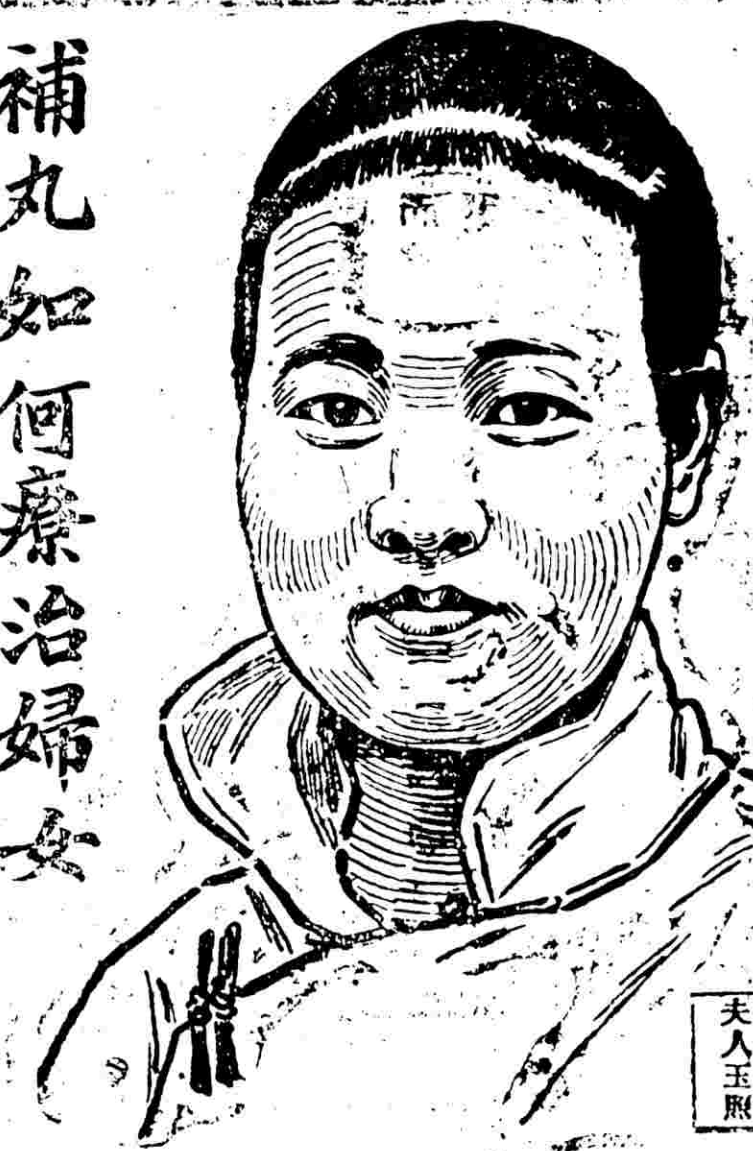 補丸如何療治婦女
夫人玉照